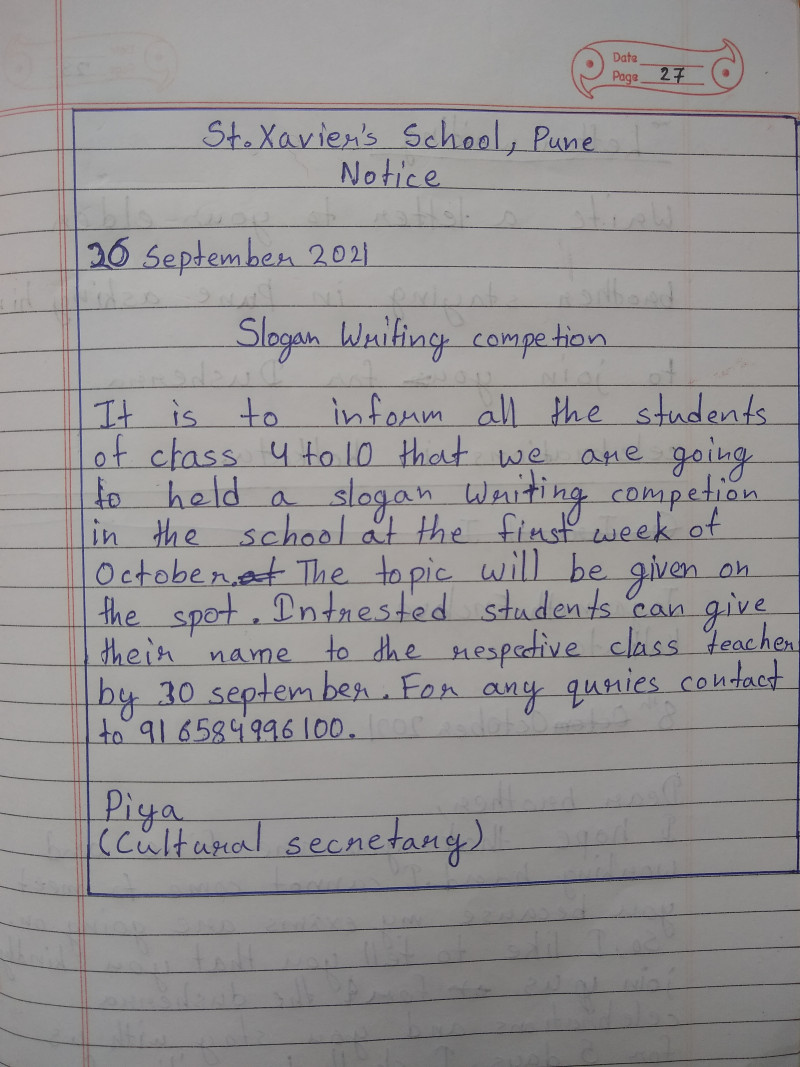 Date
Page 27
St. Xavier's School, Pune
Notice
September 2021
Slogan Writing competion
It is to inform all the students
of class 4 to 10 that we are going
to held a slogan Writing competion
in the school at the first week of
October. at The topic will be given on
the spot. Intrested students can give
their name to the respective class teacher
by 30 september. For any quries contact
to 91 6584996100.
Piya
(Cultural secretary)